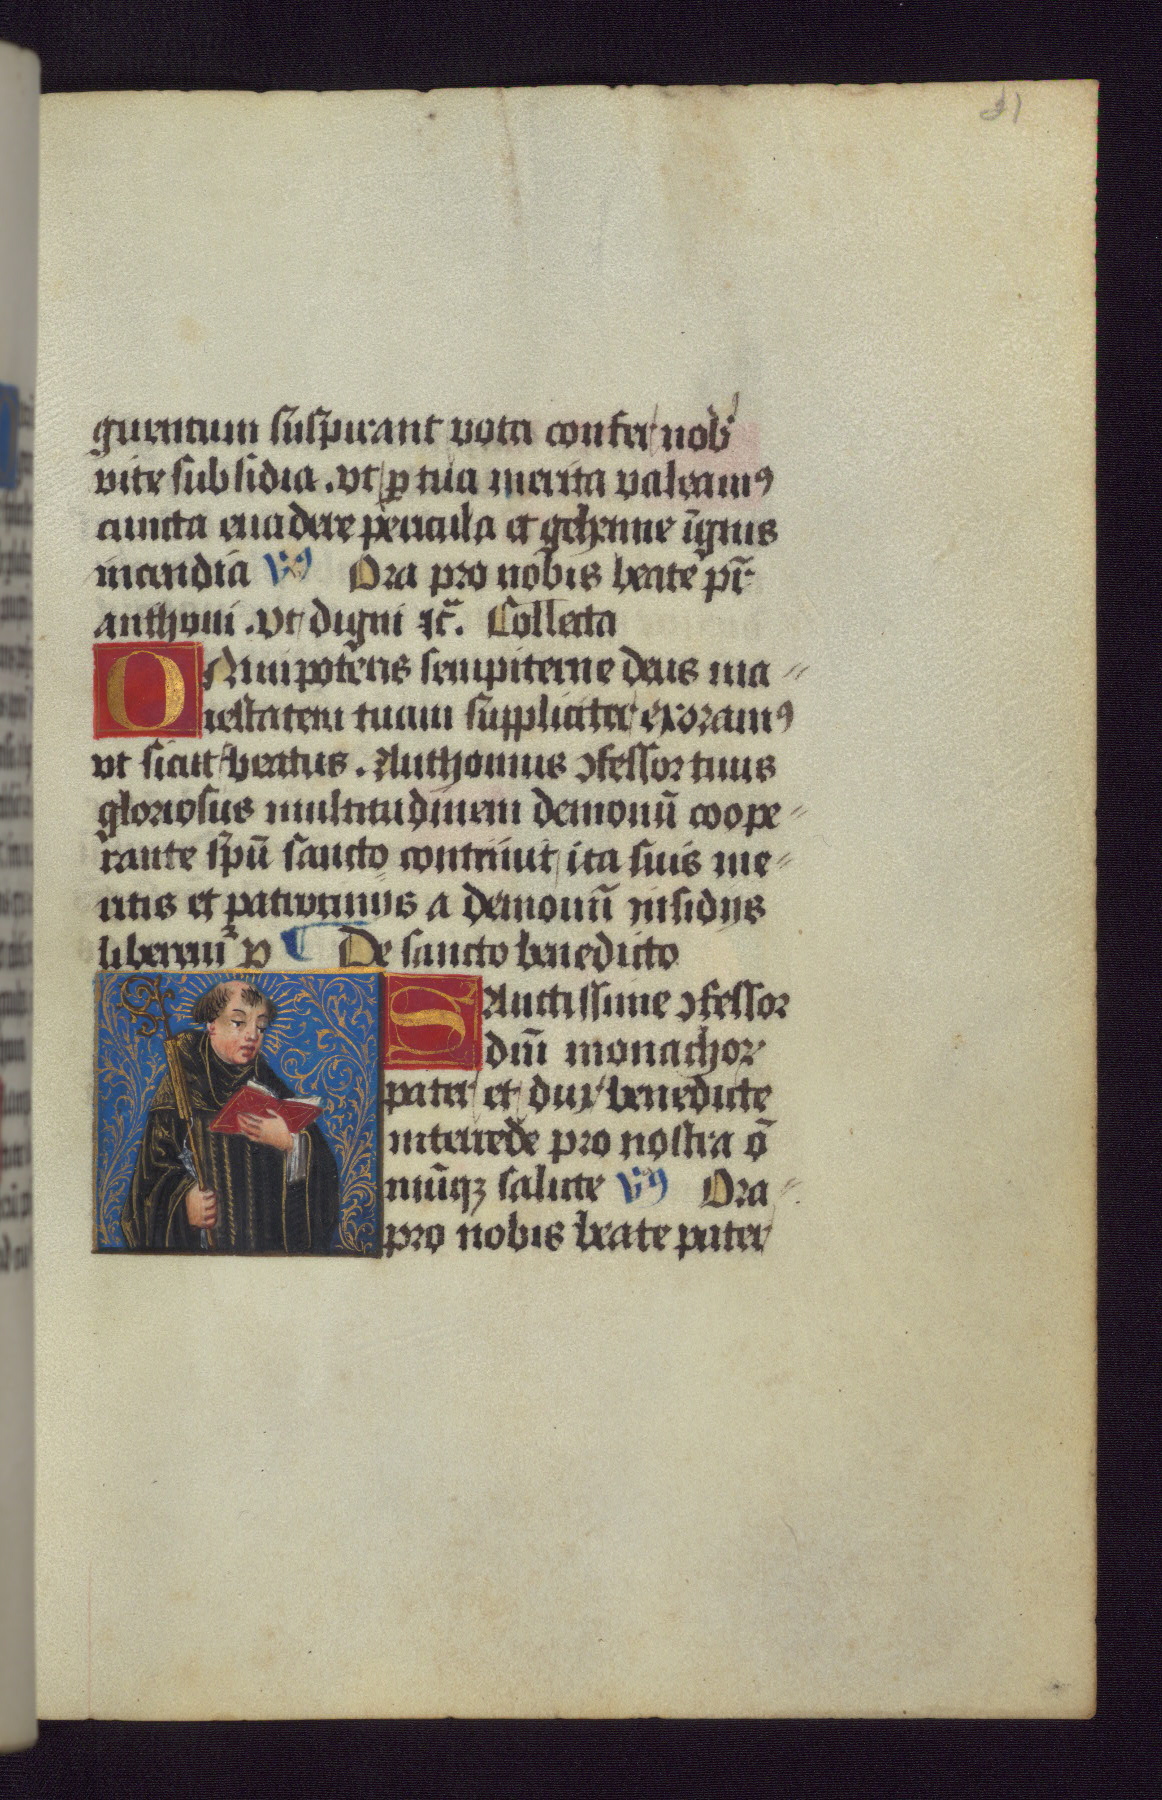 21
guentum suspirant vota confer nob᷒
vite subsidia . vt ꝑ tua merita valeamꝰ
cuncta euadere pericula et gehenne ign̄is
incendia Vꝰ Ora pro nobis beate pr̄
anthoni . vt digni ⁊c̄. Collecta
OMnipotēns sempiterne deus ma⸗
iestatem tuam suppliciter exoramꝰ
vt sicut beatus . Anthonius ꝯfessor tuus
gloriosus multitudinem demonū coope⸗
rante sp̄ū sancto contriuit ita suis me⸗
ritis et patrocinijs a demonū insidijs
De sancto benedicto
SAnctissime ꝯfessor
dn̄i monachor
pater et dux benedicte
intercede pro nostra ō
niūqꝫ salute Vꝰ Ora⸗
pro nobis beate pater